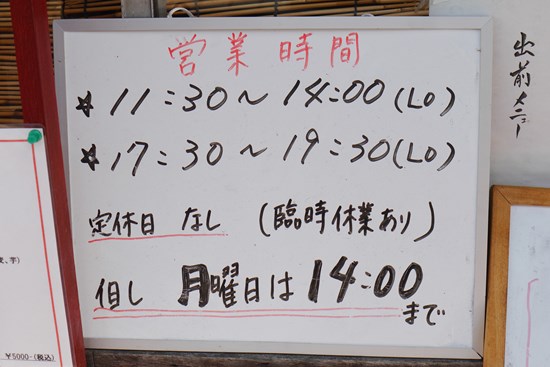 営業時間
☆11:30～14:00(LO)
☆17:30～19:30(LO)
定休日 なし (臨時休業あり)
但し 月曜日は 14:00
まで
出前メニュー
麦、芋)
¥5000-(税込)